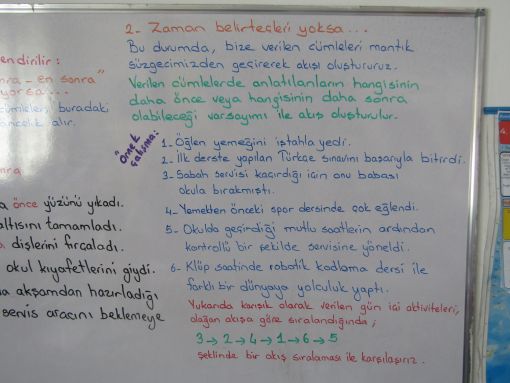 endirilir :
nra - en sonra"
yorsa...
cümleler, buradaki
öncelik alır.
nra
a önce yüzünü yıkadı.
altısını tamamladı.
dişlerini fırçaladı.
okul kıyafetlerini giydi.
a akşamdan hazırladığı
servis aracını beklemeye
2- Zaman belirteçleri yoksa...
Bu durumda, bize verilen cümleleri mantık
süzgecimizden geçirerek akışı oluştururuz.
Verilen cümlelerde anlatılanların hangisinin
daha önce veya hangisinin daha sonra
olabileceği varsayımı ile akış oluşturulur.
Örnek
çalışma:
1- Öğlen yemeğini iştahla yedi.
2- İlk derste yapılan Türkçe sınavını başarıyla bitirdi.
3- Sabah servisi kaçırdığı için onu babası
okula bırakmıştı.
4- Yemekten önceki spor dersinde çok eğlendi.
5- Okulda geçirdiği mutlu saatlerin ardından
kontrollü bir şekilde servisine yöneldi.
6- Klüp saatinde robotik kodlama dersi ile
farklı bir dünyaya yolculuk yaptı.
Yukarıda karışık olarak verilen gün içi aktiviteleri,
olağan akışa göre sıralandığında ;
3 → 2 → 4 → 1 → 6 → 5
şeklinde bir akış sıralaması ile karşılaşırız.